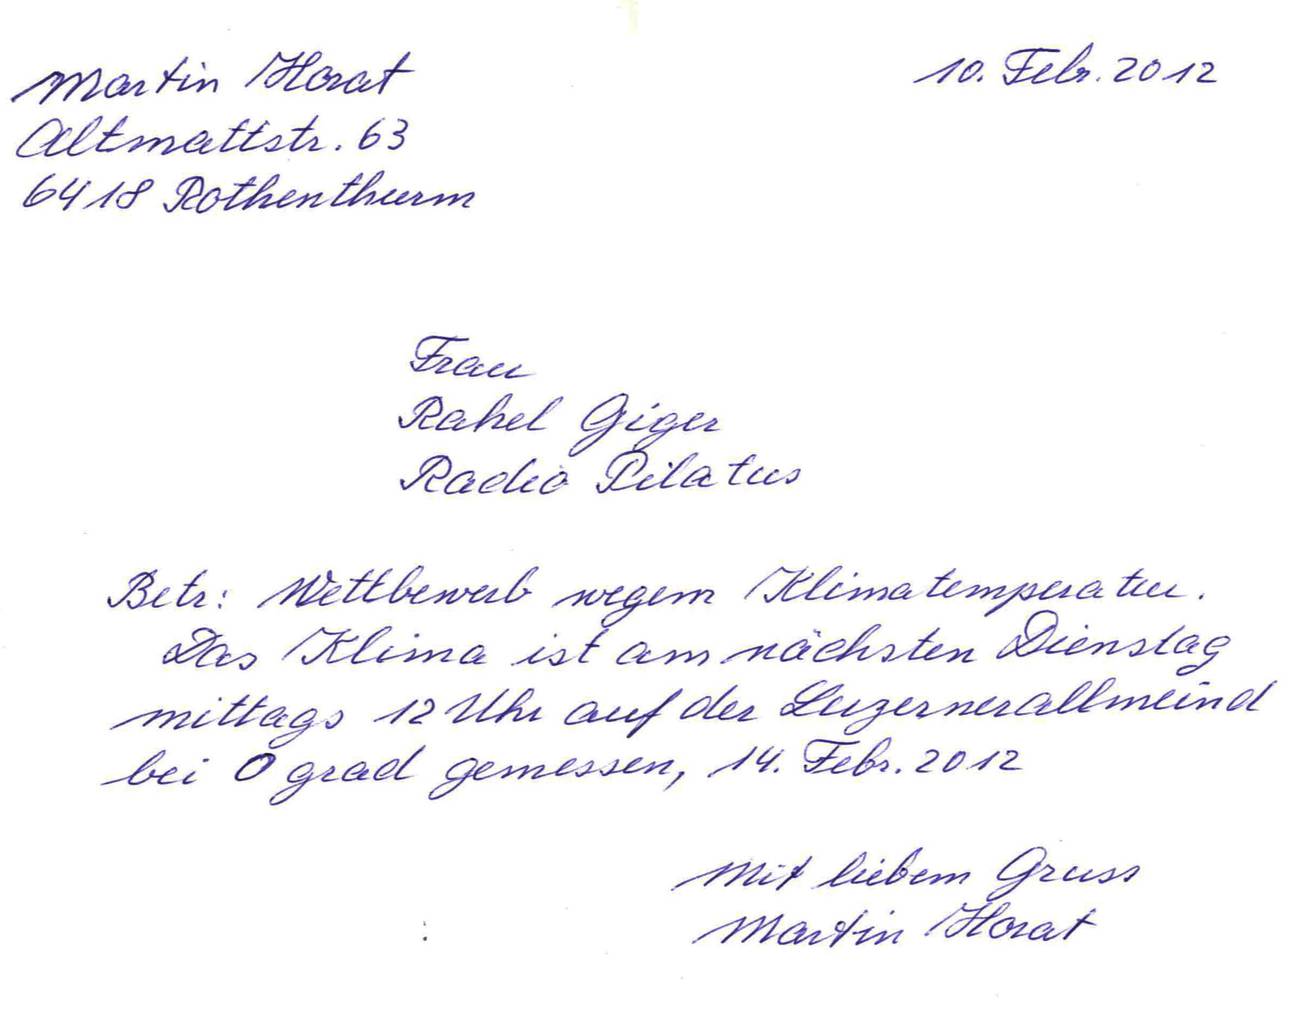 Martin Horat
10. Febr. 2012
Altmattstr. 63
6418 Rothenthurm
Frau
Rahel Giger
Radio Pilatus
Betr: Wettbewerb wegem Klimatemperatur.
Das Klima ist am nächsten Dienstag
mittags 12 Uhr auf der Luzernerallmeind
bei 0 grad gemessen, 14. Febr. 2012
Mit liebem Gruss
Martin Horat